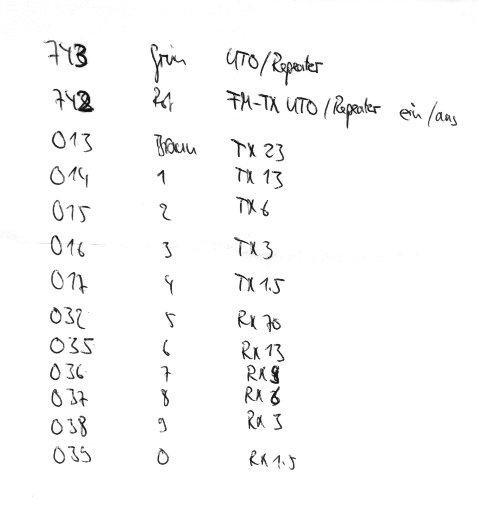 743 Grün UTO/Repeater
742 Rot FM-TX UTO/Repeater ein/aus
013 Braun TX 23
014 1 TX 13
015 2 TX 6
016 3 TX 3
017 4 TX 1.5
032 5 RX 70
035 6 RX 13
036 7 RX 9
037 8 RX 6
038 9 RX 3
039 0 RX 1.5